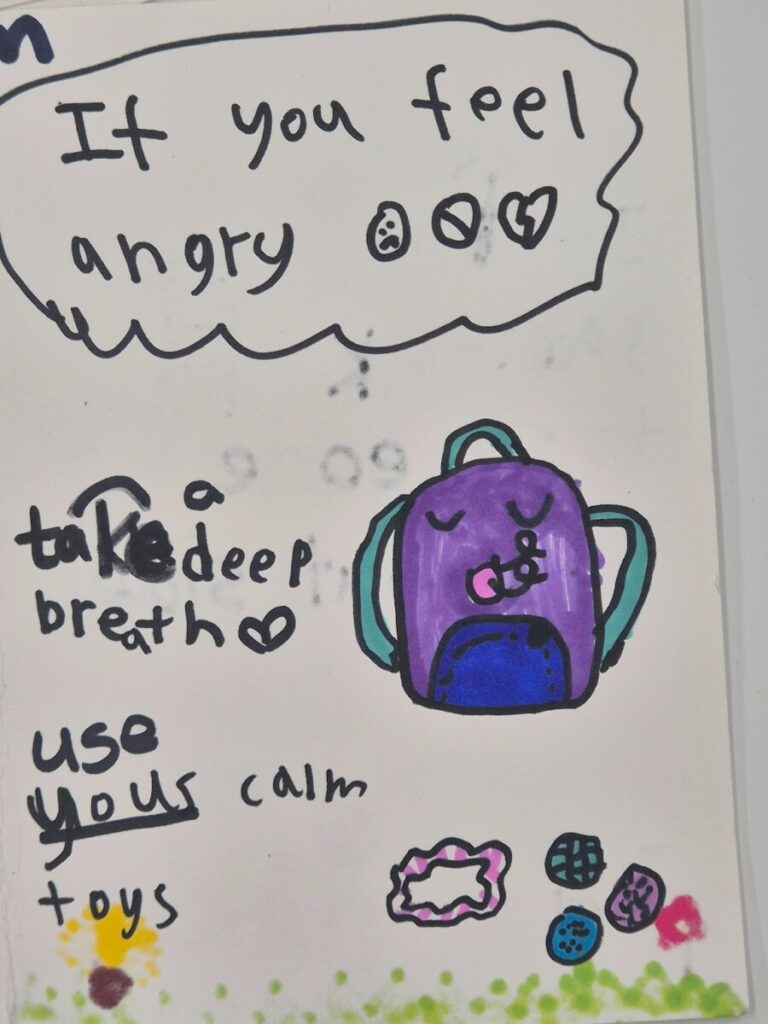 n
If you feel
angry
take a
deep
breath
use
yous calm
toys